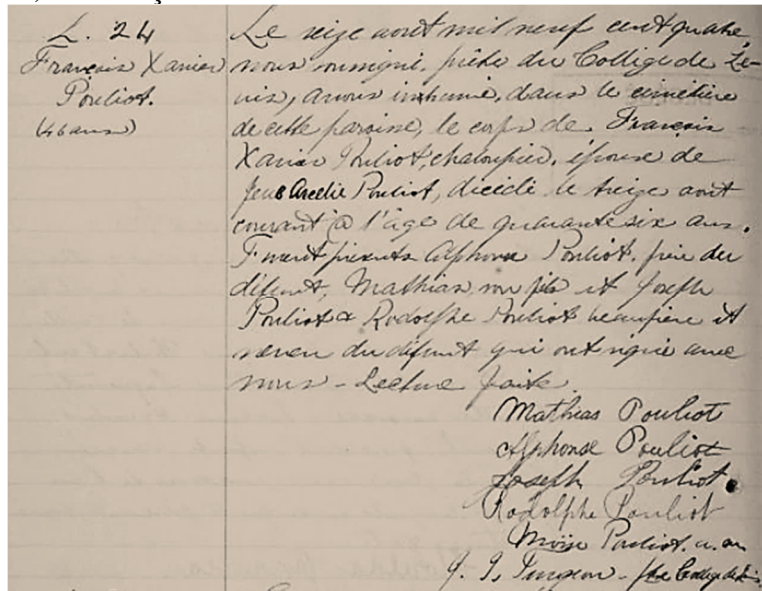 L. 24
François Xavier
Pouliot.
(46 ans)
Le seize aout mil neuf cent quatre,
nous soussigné, prêtre du Collège de Lé-
vis, avons inhumé, dans le cimetière
de cette paroisse, le corps de François
Xavier Pouliot, chaloupier, époux de
feue Arcelie Pouliot, décédé le treize aout
courant à l'âge de quarante six ans.
Furent présents Alphonse Pouliot, frère du
défunt, Mathias, son fils et Joseph
Pouliot & Rodolphe Pouliot beaufrère et
neveu du défunt qui ont signé avec
nous - Lecture faite.
Mathias Pouliot
Alphonse Pouliot
Joseph Pouliot
Rodolphe Pouliot
Moïse Pouliot.
J. Turgeon - ptre Collège de